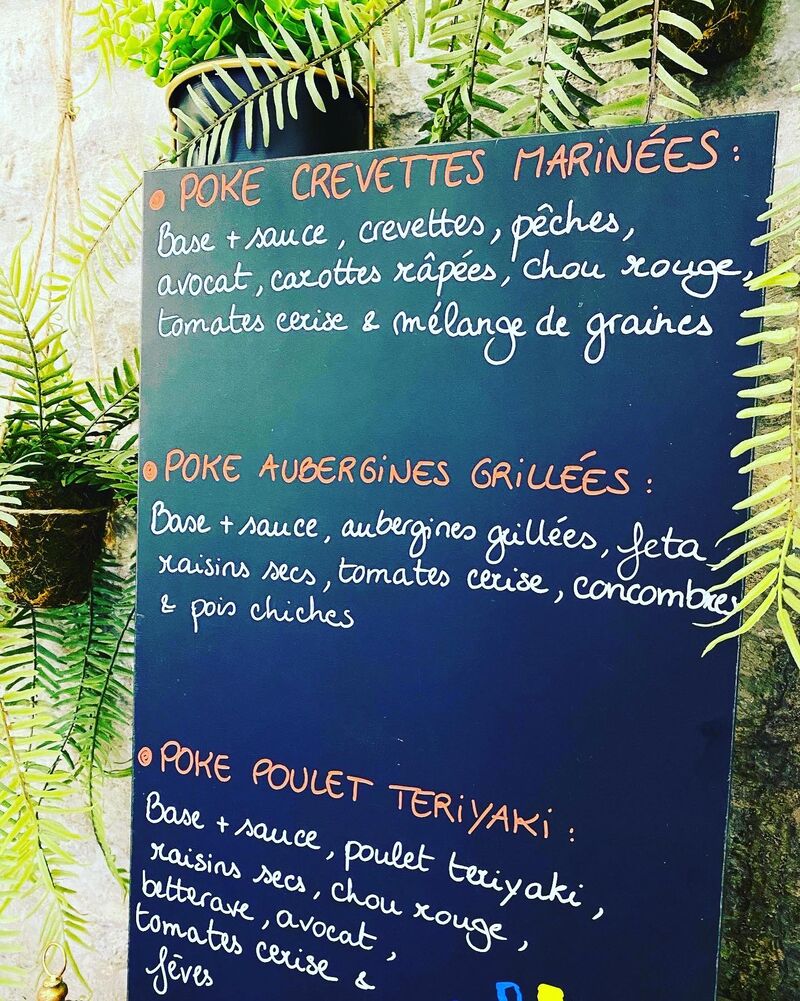 • POKE CREVETTES MARINÉES :
Base + sauce, crevettes, pêches,
avocat, carottes râpées, chou rouge,
tomates cerise & mélange de graines
• POKE AUBERGINES GRILLÉES :
Base + sauce, aubergines grillées, feta,
raisins secs, tomates cerise, concombres
& pois chiches
• POKE POULET TERIYAKI :
Base + sauce, poulet teriyaki,
raisins secs, chou rouge,
betterave, avocat,
tomates cerise &
fèves